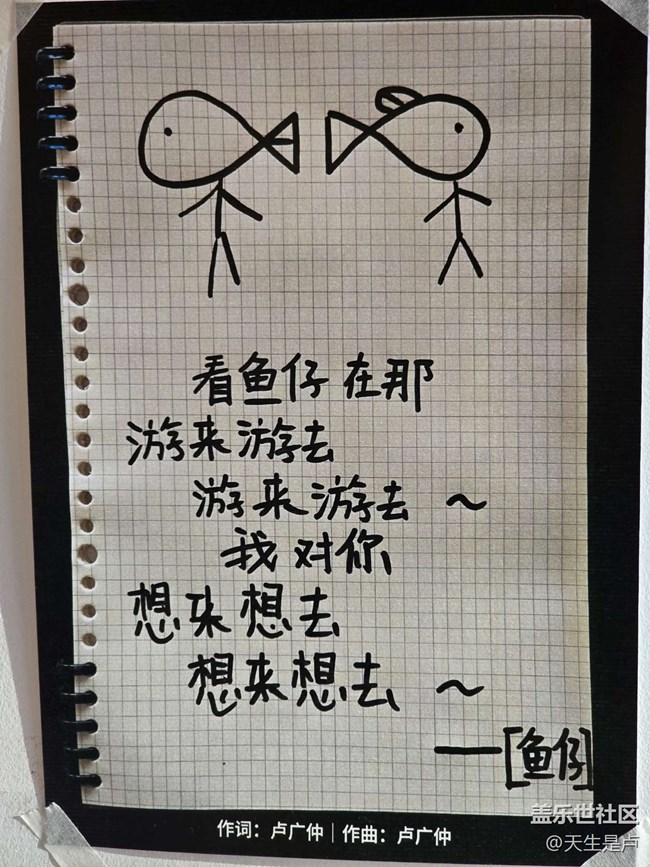 看鱼仔在那
游来游去
游来游去～
我对你
想来想去
想来想去～
——[鱼仔]
作词：卢广仲｜作曲：卢广仲
盖乐世社区
@天生是卢